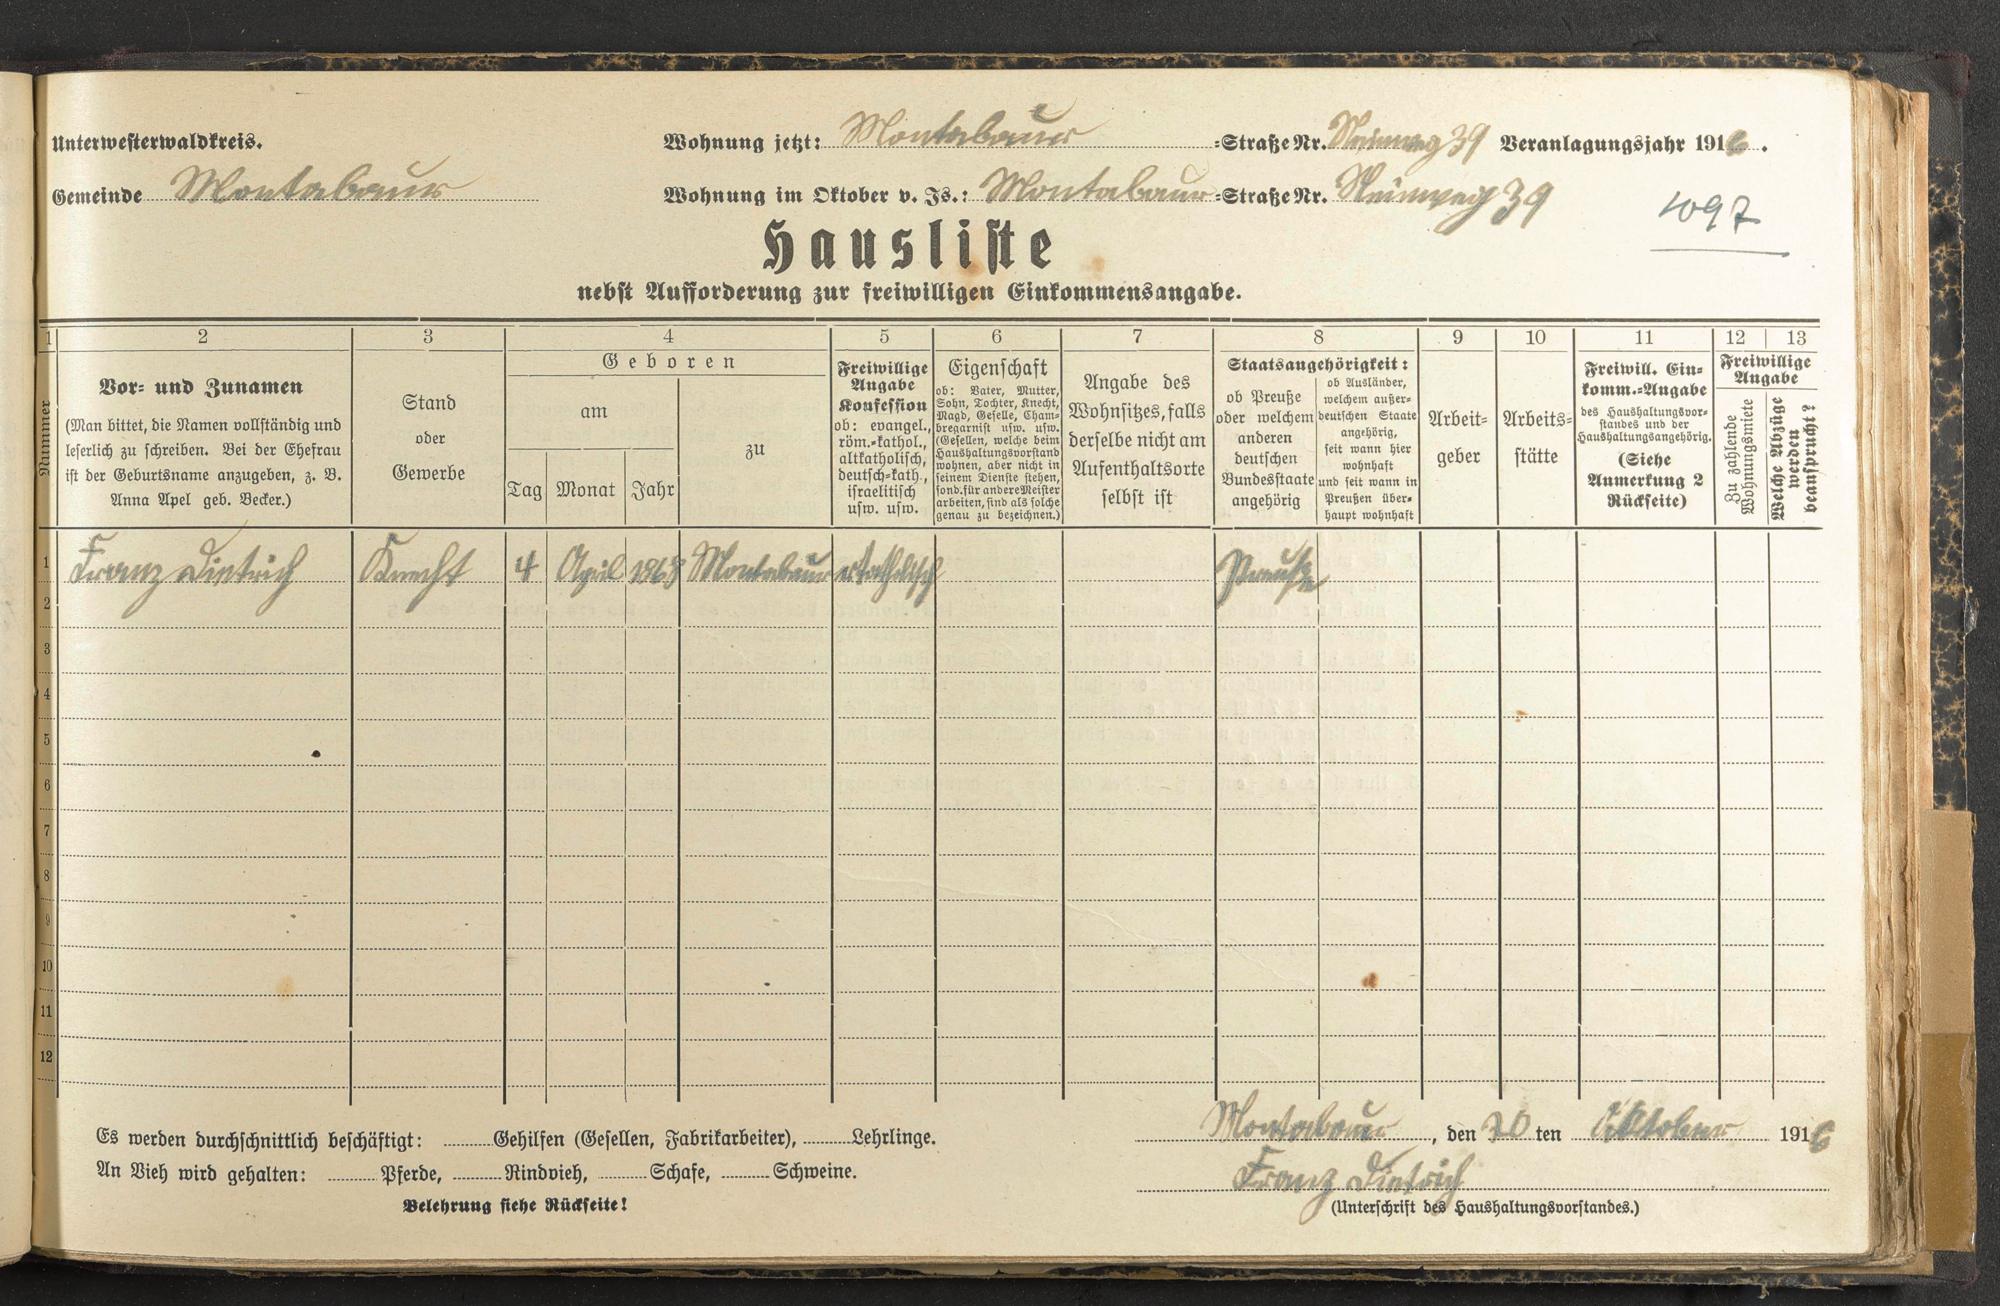 Unterwesterwaldkreis.
Wohnung jetzt: Montabaur =Straße Nr. Steinweg 39 Veranlagungsjahr 1916.
Gemeinde Montabaur
Wohnung im Oktober v. Js.: Montabaur =Straße Nr. Steinweg 39
1097
Hausliste
nebst Aufforderung zur freiwilligen Einkommensangabe.
1 2 3 4 5 6 7 8 9 10 11 12 13
Nummer
Vor= und Zunamen
(Man bittet, die Namen vollständig und
leserlich zu schreiben. Bei der Ehefrau
ist der Geburtsname anzugeben, z. B.
Anna Apel geb. Becker.)
Stand
oder
Gewerbe
Geboren
am
Tag Monat Jahr
zu
Freiwillige
Angabe
Konfession
ob: evangel.,
röm.=kathol.,
altkatholisch,
deutsch=kath.,
israelitisch
usw. usw.
Eigenschaft
ob: Vater, Mutter,
Sohn, Tochter, Knecht,
Magd, Geselle, Cham=
bregarnist usw. usw.
(Gesellen, welche beim
Haushaltungsvorstand
wohnen, aber nicht in
seinem Dienste stehen,
sond. für andere Meister
arbeiten, sind als solche
genau zu bezeichnen.)
Angabe des
Wohnsitzes, falls
derselbe nicht am
Aufenthaltsorte
selbst ist
Staatsangehörigkeit:
ob Preuße
oder welchem
anderen
deutschen
Bundesstaate
angehörig
ob Ausländer,
welchem außer=
deutschen Staate
angehörig,
seit wann hier
wohnhaft
und seit wann in
Preußen über=
haupt wohnhaft
Arbeit=
geber
Arbeits=
stätte
Freiwill. Ein=
komm.=Angabe
des Haushaltungsvor=
standes und der
Haushaltungsangehörig.
(Siehe
Anmerkung 2
Rückseite)
Freiwillige
Angabe
Zu zahlende
Wohnungsmiete
Welche Abzüge
werden
beansprucht?
1 Franz Dietrich Knecht 4 April 1868 Montabaur katholisch Preuße
2
3
4
5
6
7
8
9
10
11
12
Es werden durchschnittlich beschäftigt: Gehilfen (Gesellen, Fabrikarbeiter), Lehrlinge.
An Vieh wird gehalten: Pferde, Rindvieh, Schafe, Schweine.
Belehrung siehe Rückseite!
Montabaur, den 20 ten Oktober 1916
Franz Dietrich
(Unterschrift des Haushaltungsvorstandes.)